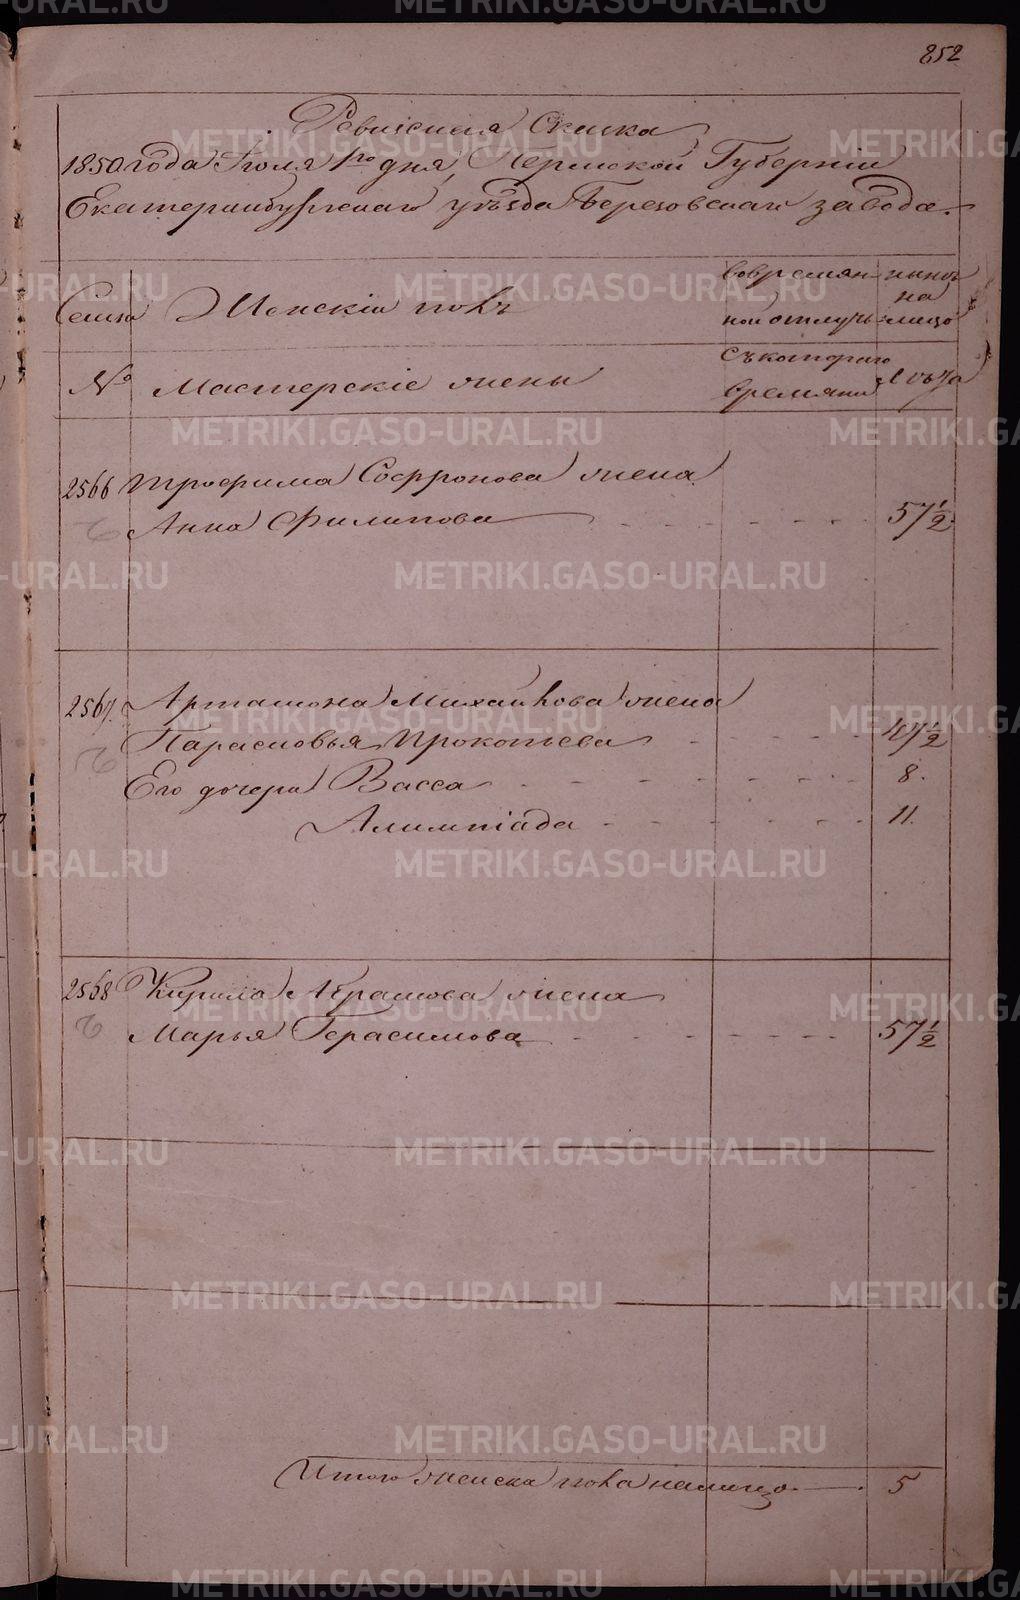 852
Ревизская Сказка
1850 года Июля 1го дня, Пермской Губернии
Екатеринбургскаго уѣзда Березовскаго завода.
Семьи Женскій полъ во времян- нынѣ
на
ной отлучь- лицо
съ котораго
№ Мастерскіе жены времяни лѣта
2566 Трофима Софронова жена
Анна Филипова 57½
2567. Артамона Михайлова жена
Парасковья Прокопьева 47½
Его дочери Васса 8.
Алимпіада 11.
2568 Кирила Абрамова жена
Марья Герасимова 57½
Итого женска пола налицо 5
METRIKI.GASO-URAL.RU